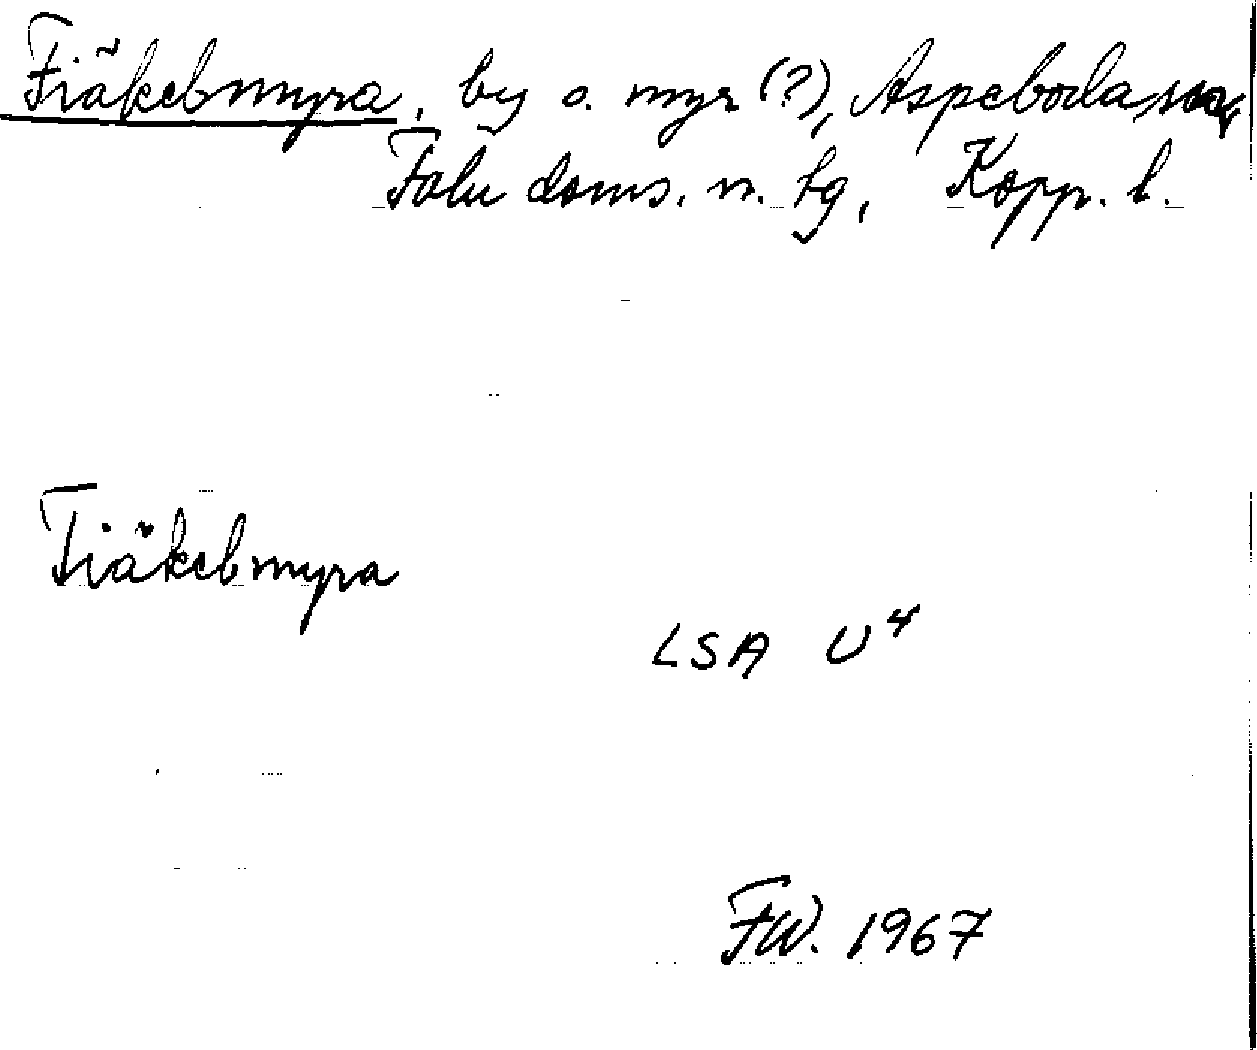 Fiäkebmyra, by o. myr (?), Aspeboda sn,
Falu doms. n. tg, Kopp. l.
Tiäkebmyra
LSA U4
FW. 1967